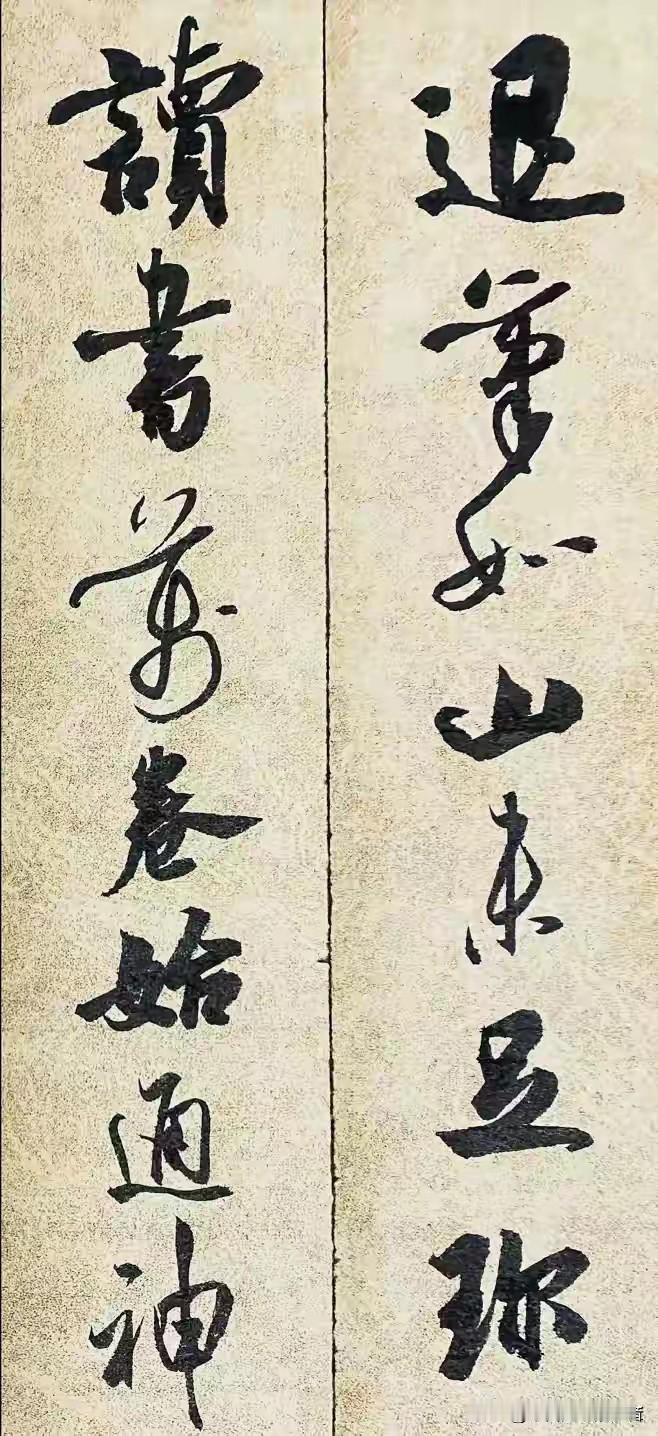 退筆如山未足珎
讀書萬卷始通神